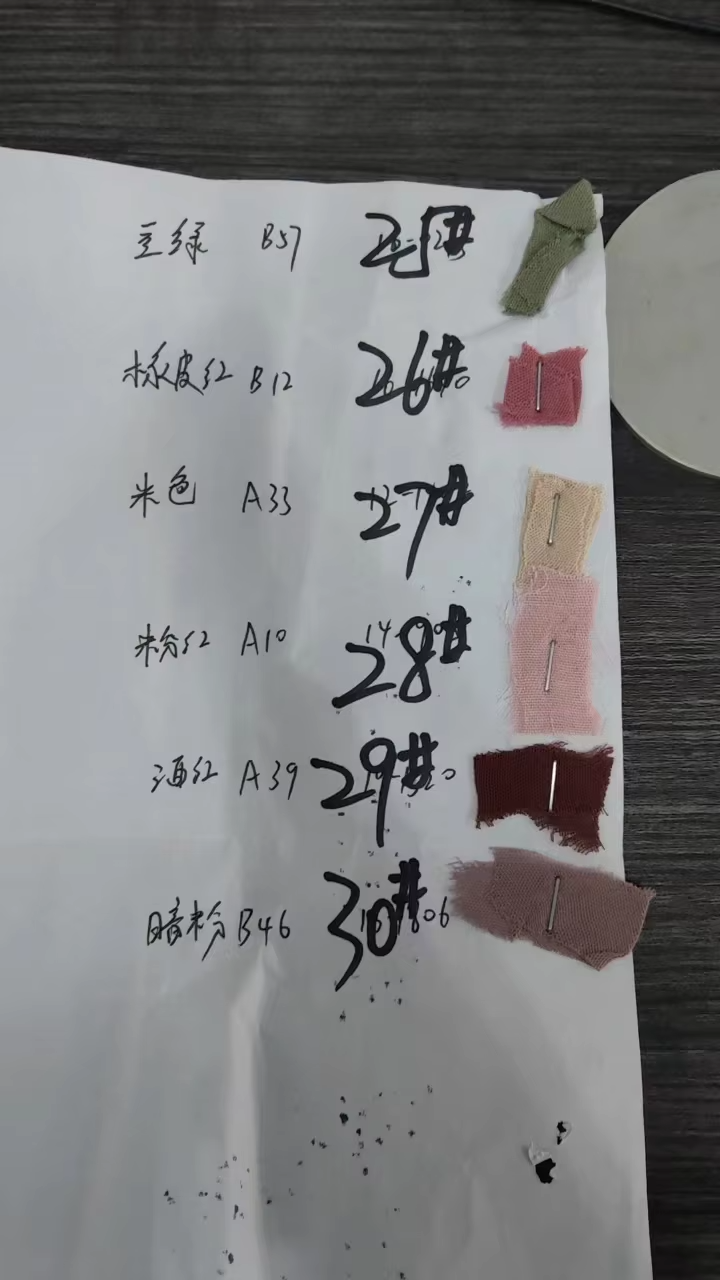 豆绿 B57 25#
橡皮红 B12 26#
米色 A33 27#
粉红 A10 28#
酒红 A39 29#
暗粉 B46 30#